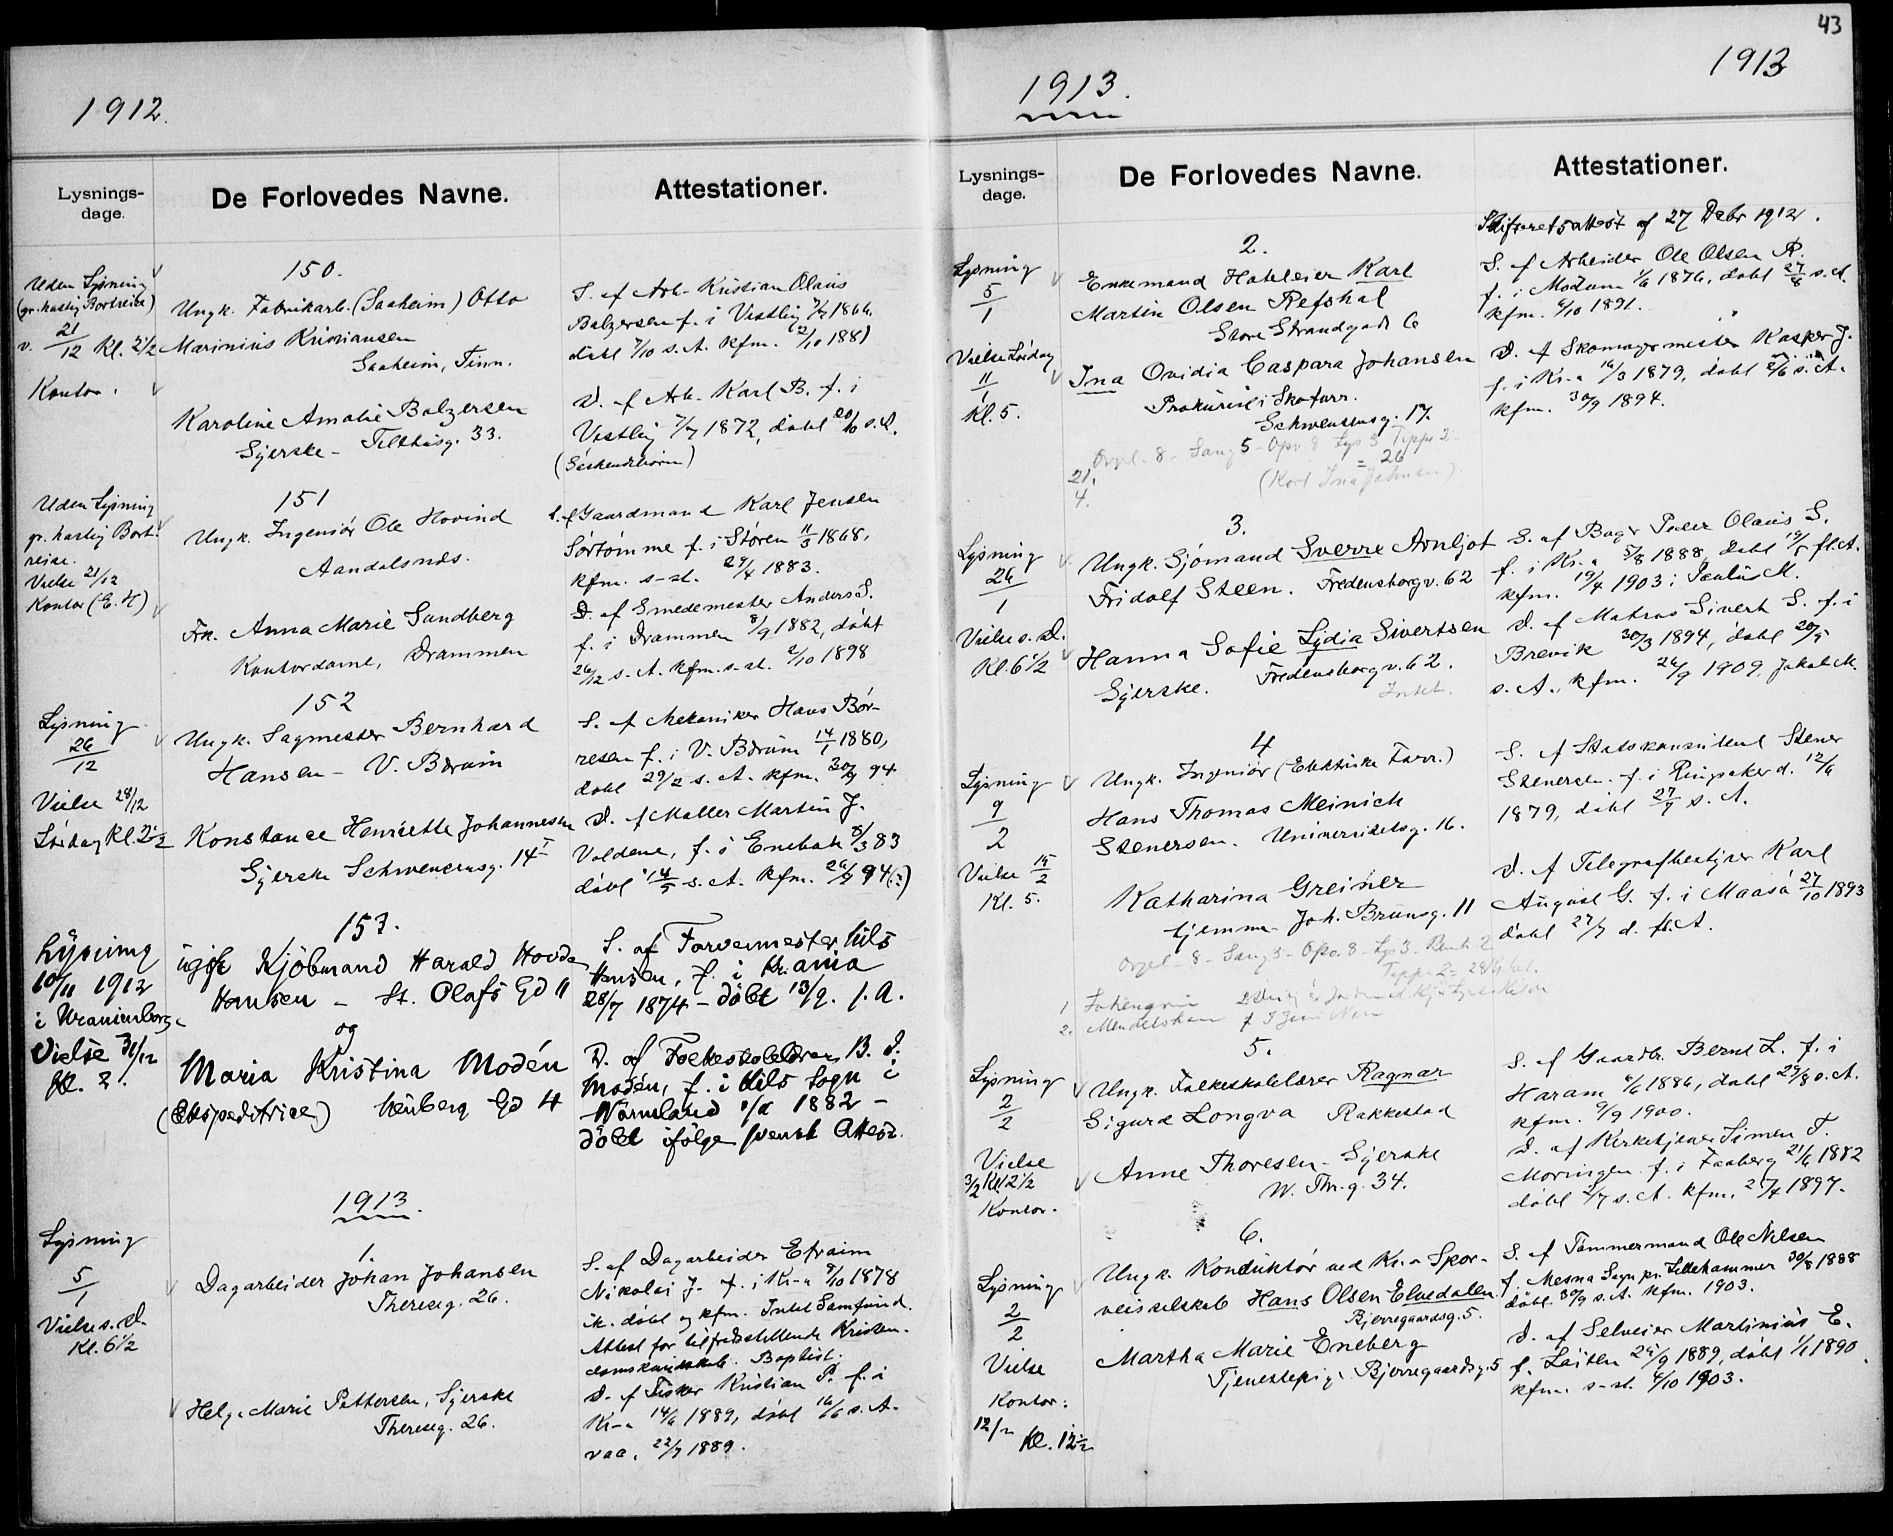 1912.
Lysnings-
dage.
De Forlovedes Navne.
Attestationer.
150.
Uden Lysning
(gr. hastig Bortreise)
v. 21/12 Kl. 2½
Kontor.
Ungk. Fabrikarb. (Saaheim) Otto
Marinius Kristiansen
Saaheim, Tinn.
Karoline Amalie Balzersen
Syerske - Telthusg. 33.
S. af Arb. Kristian Olaus
Balzersen f. i Vestby 7/7 1866
døbt 7/10 s. A. kfm. 2/10 1881
D. af Arb. Karl B. f. i
Vestby 7/7 1872, døbt 20/10 s. A.
(Søskendebørn)
151
Uden Lysning
gr. hastig Bort-
reise.
Vielse 21/12
Kontor (E. H)
Ungk. Ingeniør Ole Hovind
Aandalsnæs.
Frk. Anna Marie Sundberg
Kontordame, Drammen
S. af Gaardmand Karl Jensen
Sørtømme f. i Støren 11/3 1868,
kfm. s-st. 29/4 1883.
D. af Smedemester Anders S.
f. i Drammen 8/9 1882, døbt
26/12 s. A. kfm. s-st. 2/10 1898
152
Lysning
26/12
Vielse 28/12
Lørdag Kl. 2½
Ungk. Sagmester Bernhard
Hansen - V. Bærum
Konstance Henriette Johannesen
Syerske Schwencensg. 14 I
S. af Mekaniker Hans Bør-
resen f. i V. Bærum 14/1 1880,
døbt 29/2 s. A. kfm. 30/9 94.
D. af Møller Martin J.
Voldene, f. i Enebak 8/3 83
døbt 14/5 s. A. kfm. 26/9 94 (?)
153.
Lysning
10/11 1912
i Uranienborg.
Vielse 31/12
Kl. 2.
ugift Kjøbmand Harald Hovda
Hansen - St. Olafs Gd 11
og
Maria Kristina Modén
(Ekspeditrice) Keuberg Gd 4
S. af Farvermester Nils
Hansen, f. i Kr.ania
28/7 1874 - døbt 13/9. s. A.
D. af Folkeskolelærer B. J.
Modén, f. i Kils Sogn i
Wärmland 1882 -
døbt ifølge svensk Attest.
1913.
1.
Lysning
5/1
Vielse s. D.
Kl. 6½
Dagarbeider Johan Johansen
Thereseg. 26.
Helga Marie Pettersen, Syerske
Thereseg. 26.
S. af Dagarbeider Efraim
Nikolai J. f. i Kr-a 9/10 1878
ik. døbt og kfm. Intet Samfund.
Attest for tilfredsstillende Kristen-
domskundskab. Baptist.
D. af Fisker Kristian P. f. i
Kr-a 14/6 1889, døbt 16/6 s. A.
vac. 22/7 1889.
43
1913.
1913
Lysnings-
dage.
De Forlovedes Navne.
Attestationer.
2.
Lysning
5/1
Vielse Lørdag
11/1
Kl. 5.
Enkemand Hoteleier Karl
Martin Olsen Refshal
Store Strandgade 6
Ina Ovidia Caspara Johansen
Prokurist i Skoforr.
Schwensensg. 17.
Orgel - 8 - Sang 5 - Opv. 8 Lys 3 Tepper 2
= 26
21.
4.
Skifteretsattest af 27 Debr 1912.
S. af Arbeider Ole Olsen R.
f. i Modum 1/6 1876, døbt 27/8 s. A.
kfm. 4/10 1891.
D. af Skomagermester Kasper J.
f. i Kr-a 16/3 1879, døbt 2/6 s. A.
kfm. 30/9 1894.
3.
Lysning
26/1
Vielse s. D.
Kl. 6½
Ungk. Sjømand Sverre Arnljot
Fridolf Steen. Fredensborgv. 62
Hanna Sofie Lydia Sivertsen
Syerske. Fredensborgv. 62.
Intet.
S. af Bager Peder Olaus S.
f. i Kr.a 5/8 1888, døbt 19/5 fl. A.
kfm. 19/4 1903 i Paulus M.
D. af Matros Sivert S. f. i
Brevik 30/3 1894, døbt 20/5
s. A., kfm. 26/9 1909, Jakob M.
4
Lysning
9/2
Vielse 15/2
Kl. 5.
Ungk. Ingeniør (Elektriske Forr.)
Hans Thomas Meinich
Stenersen. Universitetsg. 16.
Katharina Greiner
hjemme. Joh. Brunsg. 11
Orgel - 8 - Sang 5 - Opv. 8 - Lys 3 - Benk 2
Tepp. 2 = 28
1 Lohengrin
2. Mendelshon
S. af Statskonsulent Stener
Stenersen. f. i Ringsaker d. 12/6
1879, døbt 27/7 s. A.
D. af Telegrafbestyrer Karl
August G. f. i Maasø 27/10 1893
døbt 27/7 d. fl. A.
5.
Lysning
2/2
Vielse
3/2 Kl. 2½
Kontor.
Ungk. Folkeskolelærer Ragnar
Sigurd Longva Rakkestad
Anne Thoresen - Syerske
W. Thr. g. 34.
S. af Gaardb. Bernt L. f. i
Haram 6/6 1886, døbt 29/8 s. A.
kfm. 9/9 1900.
D. af Kirketjener Simen T.
Moringen f. i Faaberg 21/6 1882
døbt 2/7 s. A. kfm. 27/4 1897.
6.
Lysning
2/2
Vielse
Kontor:
12/2
Kl. 12½
Ungk. Konduktør ved Kr.a Spor-
veisselskab Hans Olsen Elvedalen.
Bjerregaardsg. 5.
Martha Marie Eneberg
Tjenestepige Bjerregaardsg. 5
S. af Tømmermand Ole Nilsen
f. Mesna Sogn pr. Lillehammer 30/8 1888
døbt 30/9 s. A. kfm. 1903.
D. af Selveier Martinius E.
f. Løiten 25/9 1889, døbt 1/1 1890
kfm. s-st. 4/10 1903.